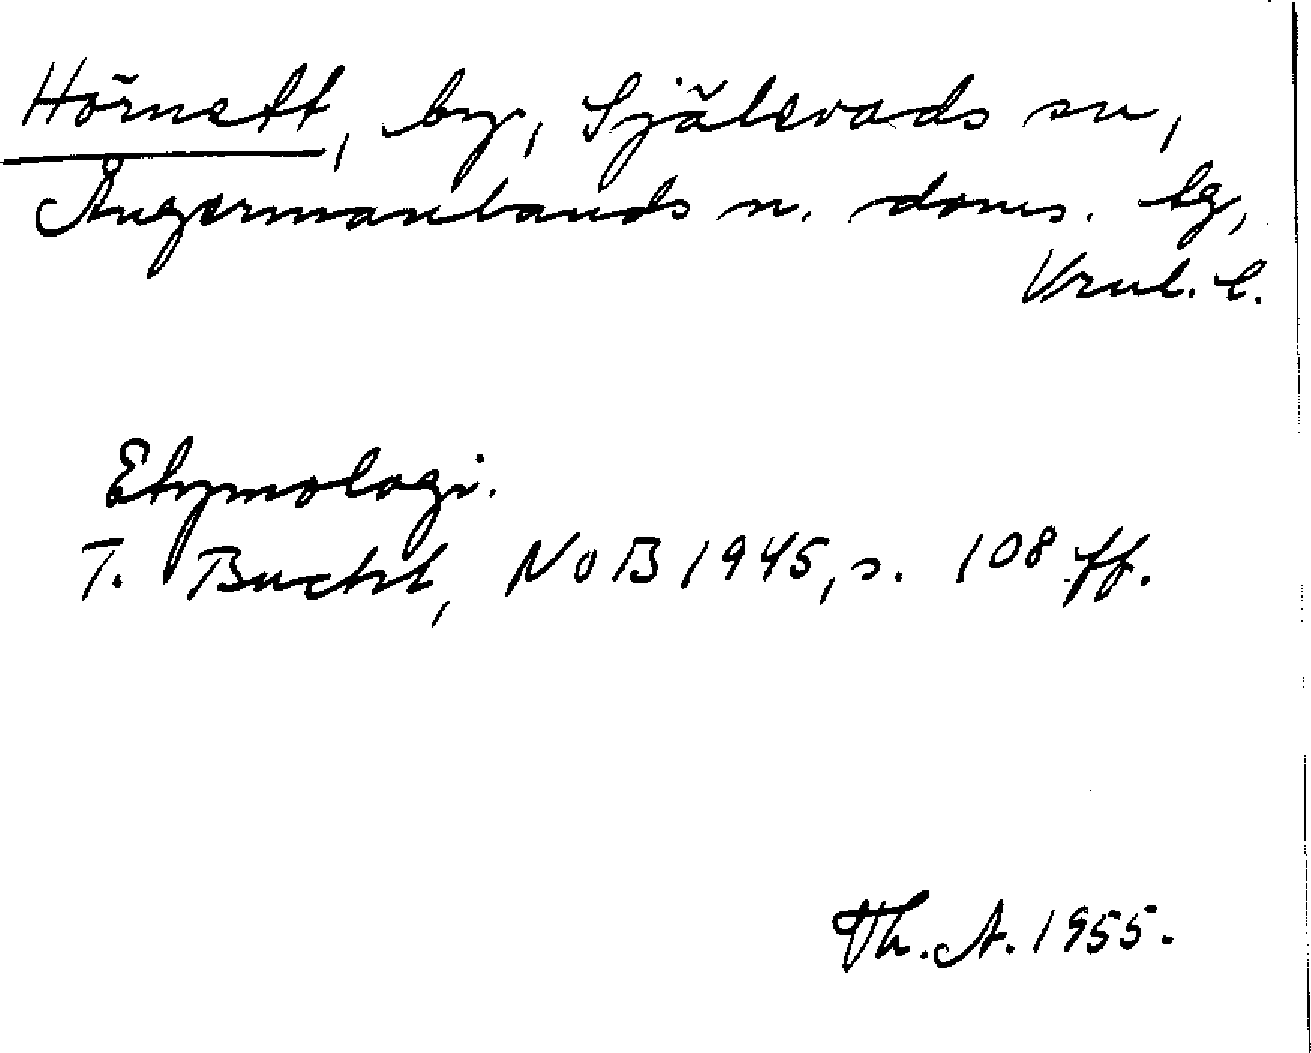 Hörnett, by, Själevads sn,
Ångermanlands n. doms. lg,
Vnul. l.
Etymologi.
T. Bucht, NoB 1945, s. 108 ff.
Th. A. 1955.